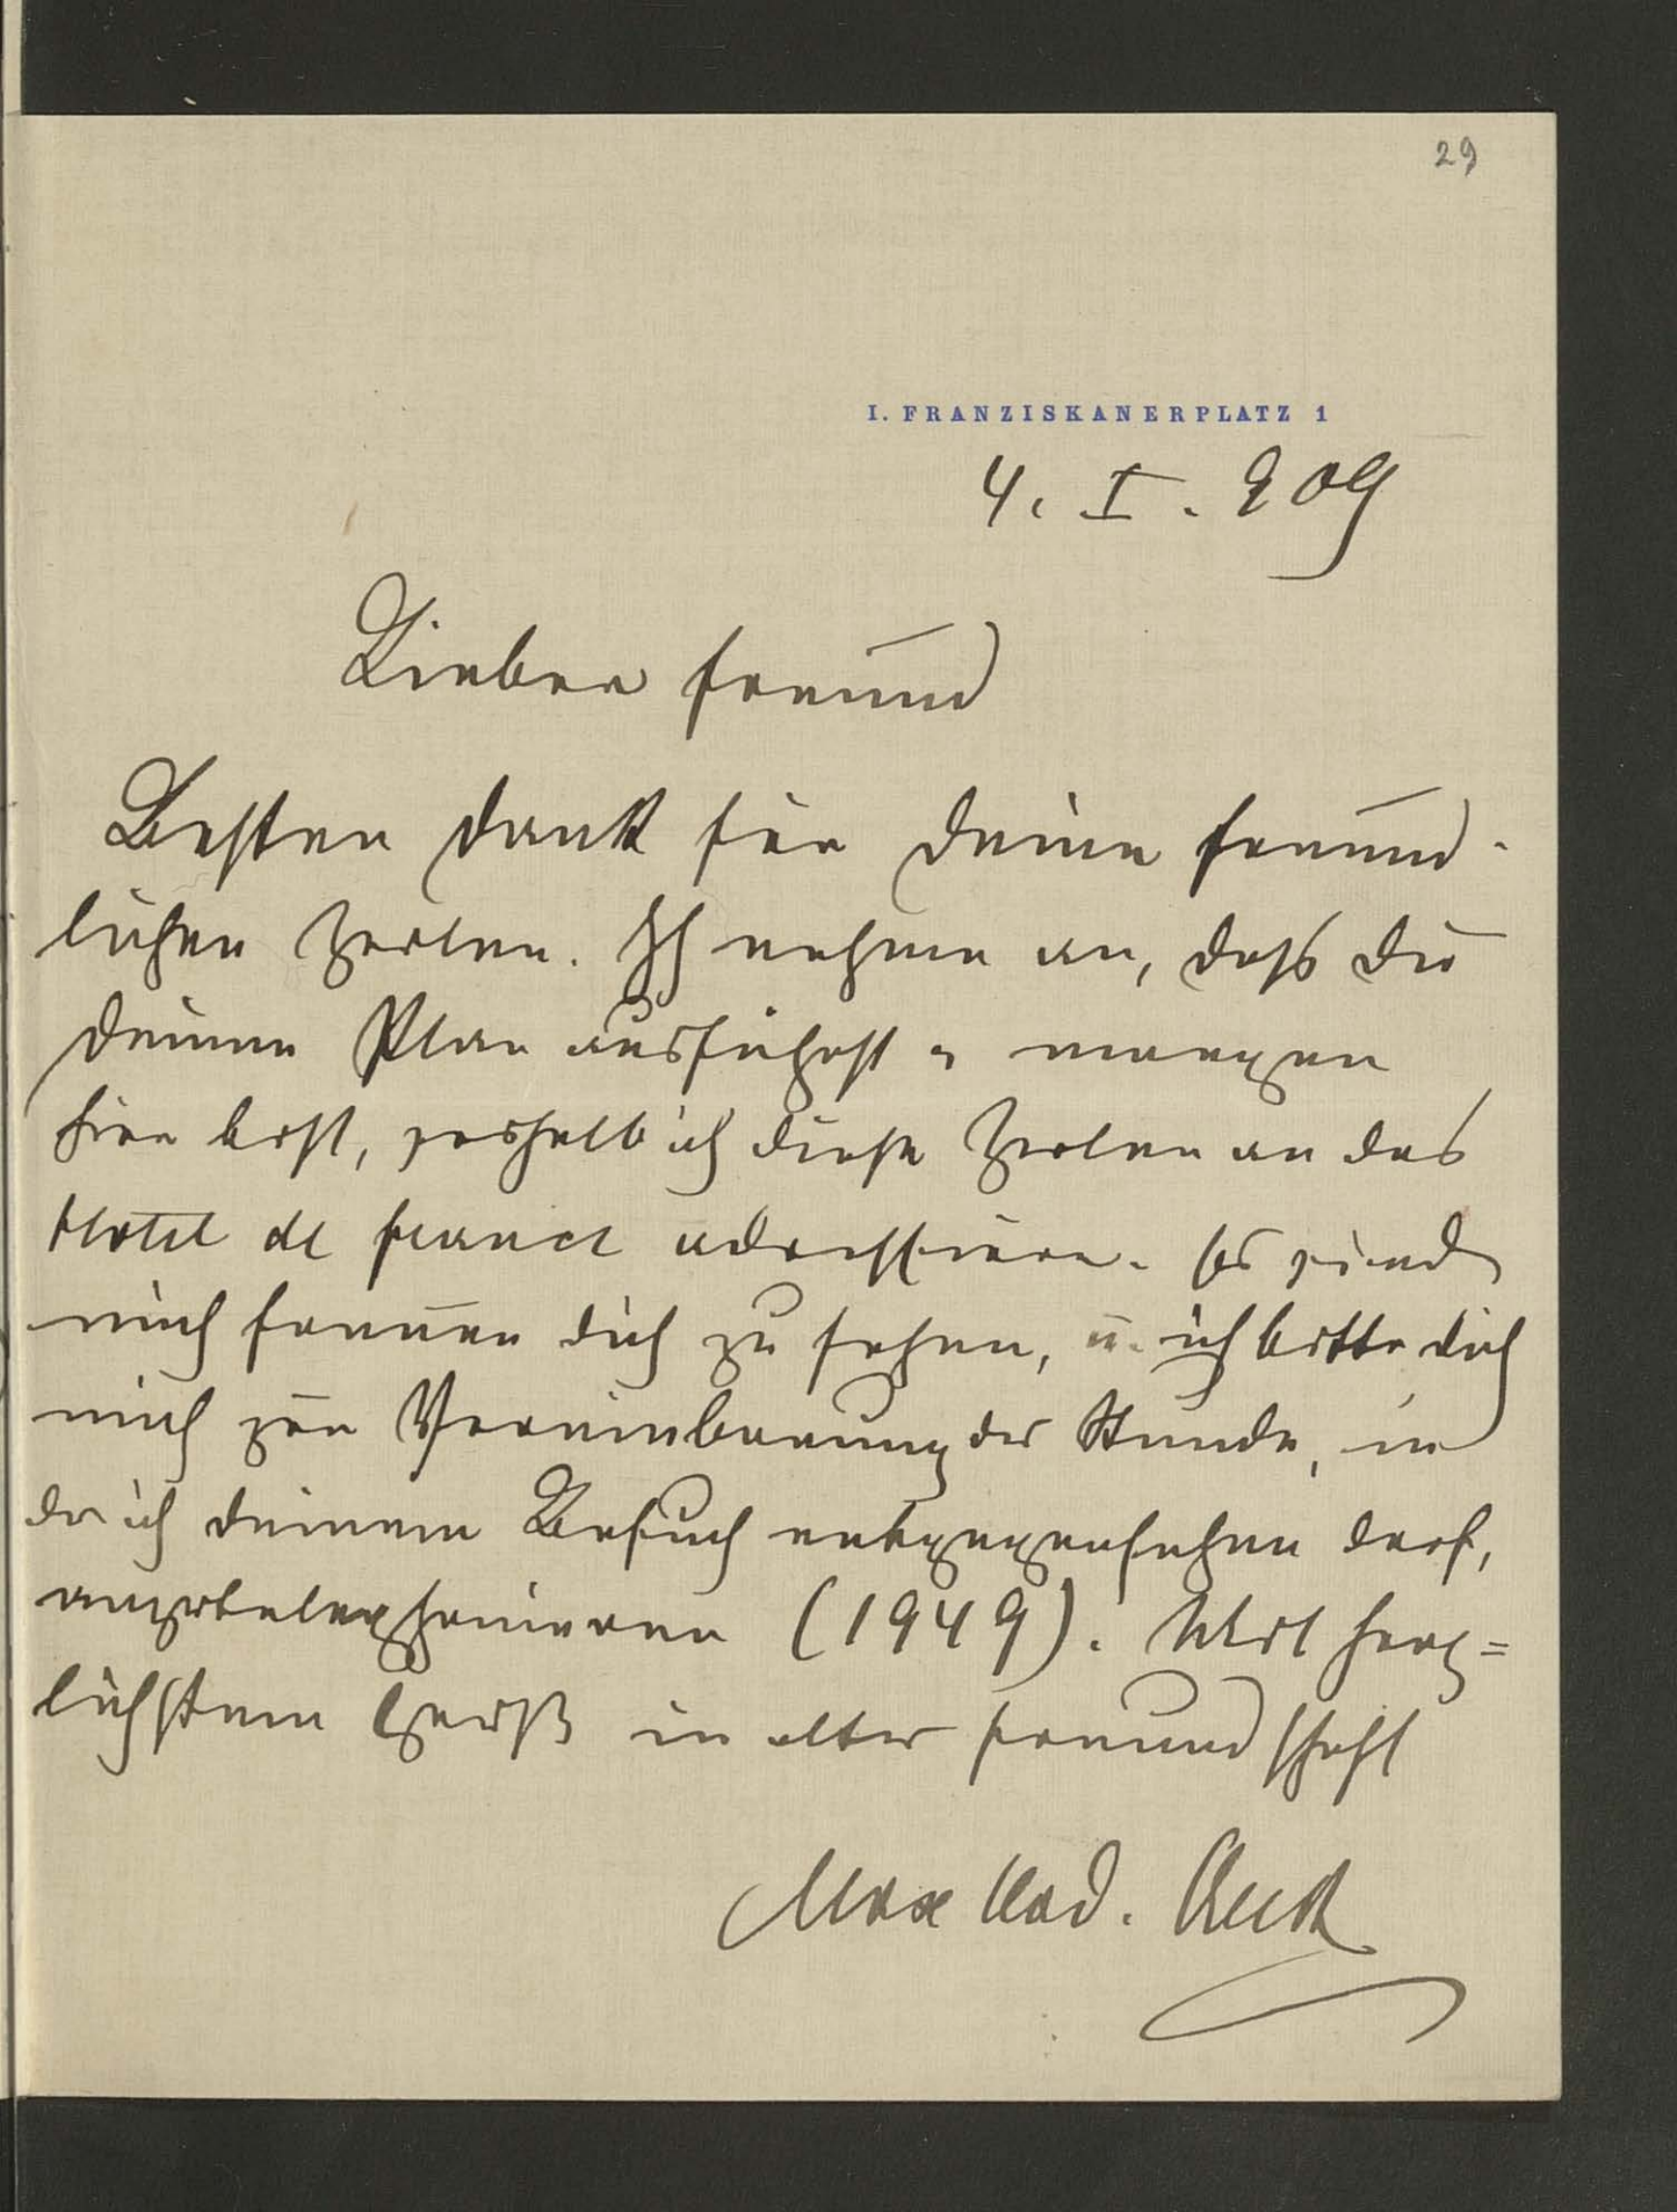 29
I. FRANZISKANERPLATZ 1
4. I. 909
Lieber Freund
Besten Dank für Deine freund-
lichen Zeilen. Ich nehme an, dass Du
Deinen Plan ausführst u morgen
hier bist, weshalb ich diese Zeilen an das
Hotel de France adressiere. Es würde
mich freuen Dich zu sehen, u. ich bitte Dich
mich zur Vereinbarung der Stunde, in
der ich Deinem Besuch entgegensehen darf,
anzutelephonieren (1949). Mit herz=
lichstem Gruß in alter Freundschaft
Max